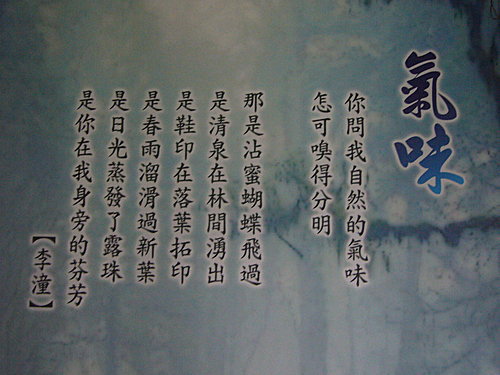 氣味
你問我自然的氣味
怎可嗅得分明
那是沾蜜蝴蝶飛過
是清泉在林間湧出
是鞋印在落葉拓印
是春雨溜滑過新葉
是日光蒸發了露珠
是你在我身旁的芬芳
【李潼】